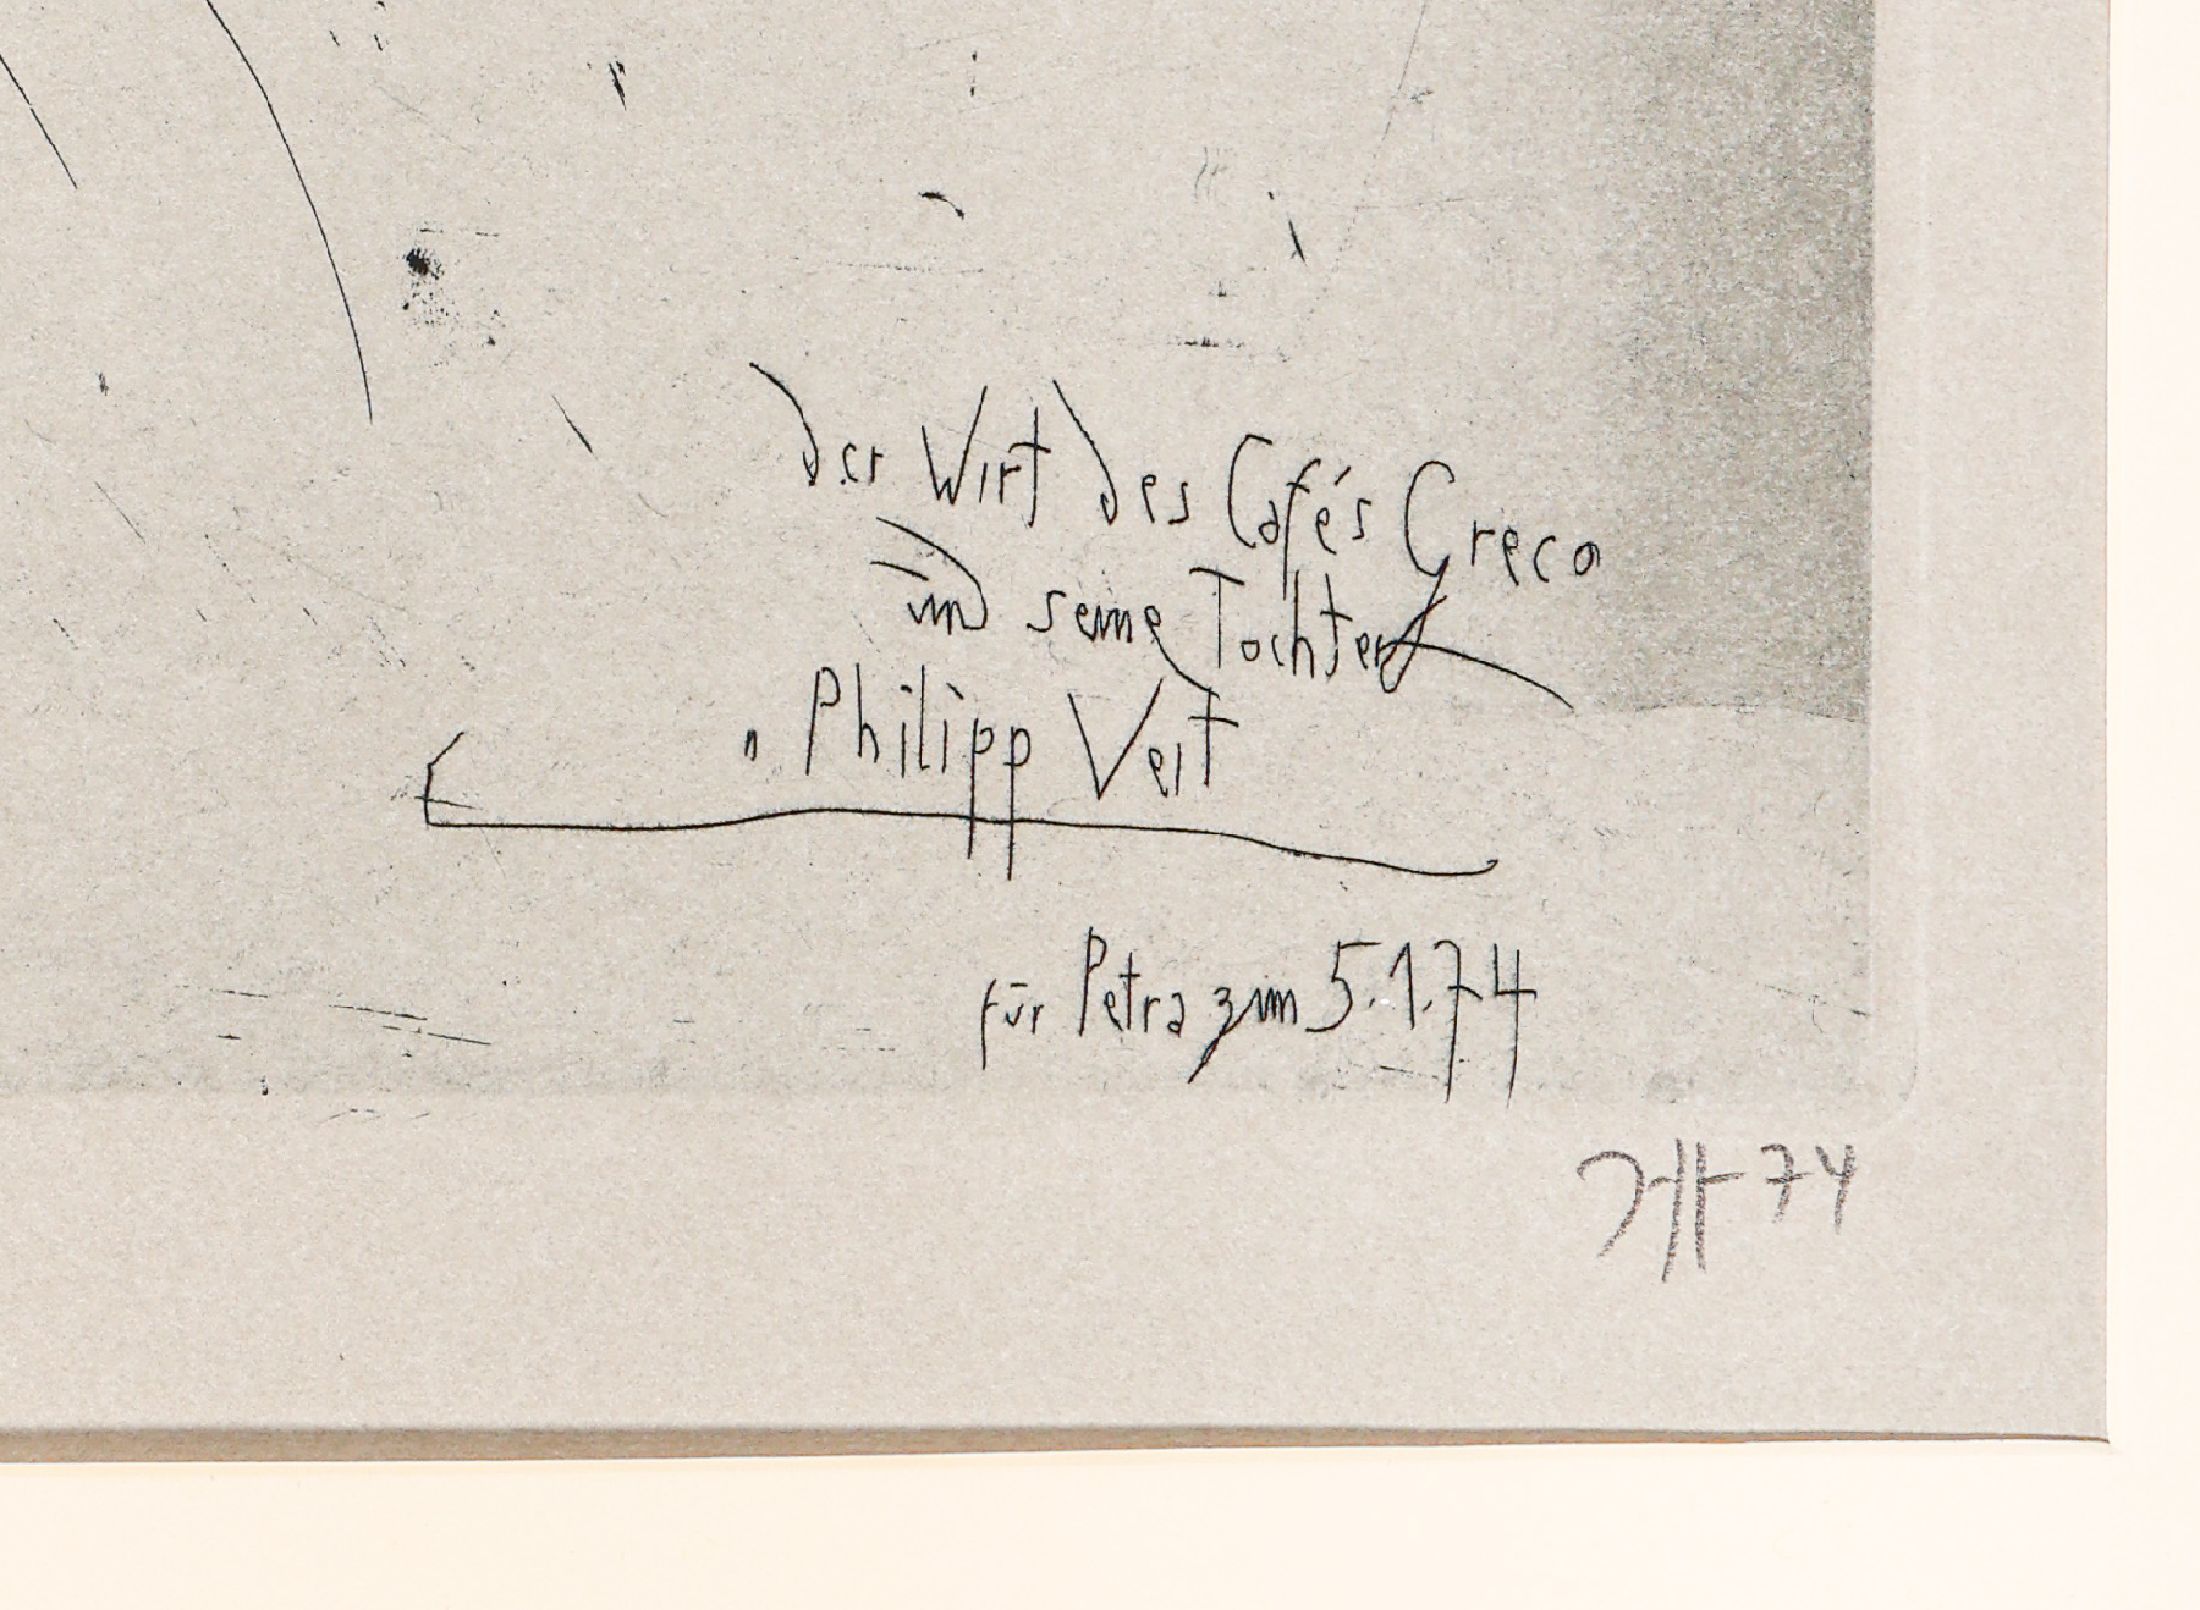 der Wirt des Cafés Greco
und seine Tochter
" Philipp Veit
für Petra zum 5.1.74
74